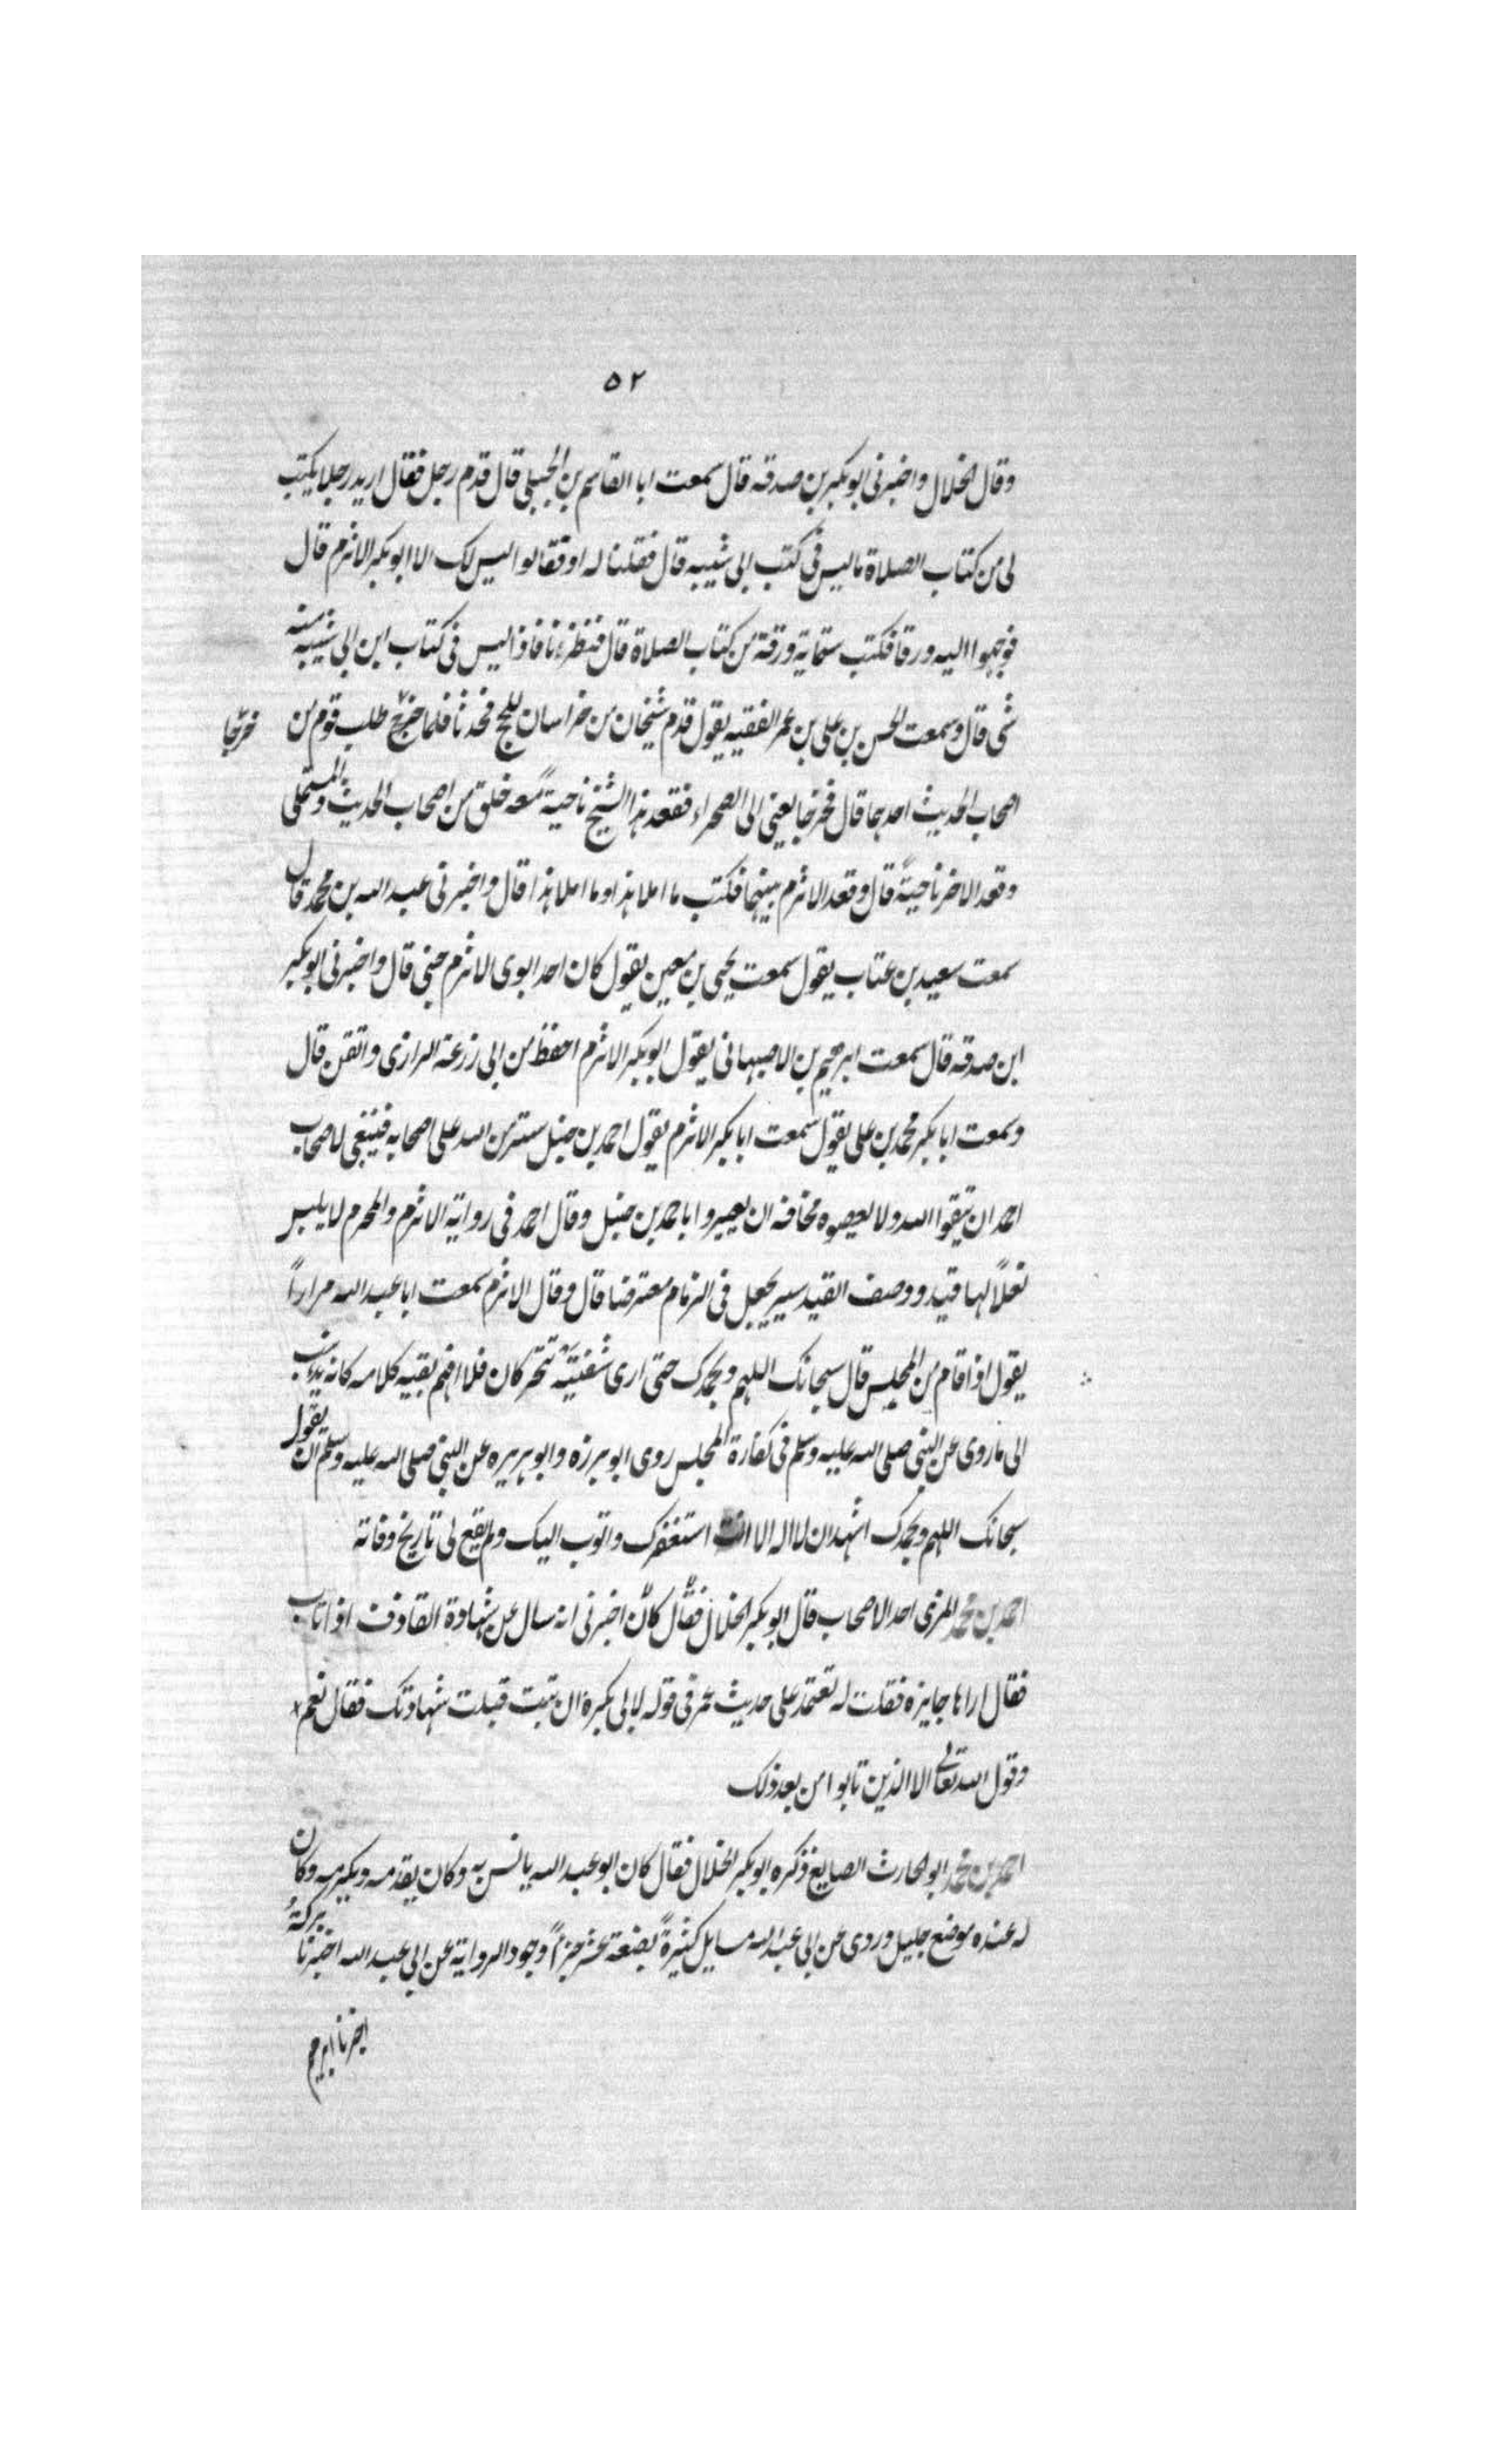 ٥٢
وقال الخلال واخبرنى ابو بكر بن صدقه قال سمعت ابا القاسم بن الجبلى قال قدم رجل فقال اريد رجلا يكتب
لى من كتاب الصلاة ماليس فى كتب ابى شيبه قال فقلنا له او فقالوا ليس لك الا ابو بكر الاثرم قال
فوجهوا اليه ورقا فكتب ستمايه ورقة من كتاب الصلاة قال فنظرنا فاذا ليس فى كتاب ابن ابى شيبه منه
شى قال وسمعت الحسن بن على بن عمر الفقيه يقول قدم شيخان من خراسان للحج فحدثنا فلما خرج طلب قوم من
خرجا
اصحاب الحديث احدهما قال فخرجا يعنى الى الصحراء فقعد هذا الشيخ ناحيةً معه خلق من اصحاب الحديث والمستملى
وقعد الاخر ناحيةً قال وقعد الاثرم بينهما فكتب ما املا هذا وما املا هذا قال واخبرنى عبد الله بن محمد قال
سمعت سعيد بن عتاب يقول سمعت يحيى بن معين يقول كان احد ابوى الاثرم جنى قال واخبرنى ابو بكر
ابن صدقه قال سمعت ابرهيم بن الاصبهانى يقول ابو بكر الاثرم احفظ من ابى زرعة الرازى واتقن قال
وسمعت ابا بكر محمد بن على يقول سمعت ابا بكر الاثرم يقول احمد بن حنبل ستر من الله على اصحابه فينبغى لاصحاب
احمد ان يتقوا الله ولا يعصوه مخافة ان يعيروا باحمد بن حنبل وقال احمد فى رواية الاثرم والمحرم لا يلبس
نعلاً لها قيد ووصف القيد سير يجعل فى الزمام معترضا قال وقال الاثرم سمعت ابا عبد الله مراراً
يقول اذا قام من المجلس قال سبحانك اللهم وبحمدك حتى ارى شفتيه تتحركان فلا افهم بقيه كلامه كانه يذهب
الى ماروى عن النبى صلى الله عليه وسلم فى كفارة المجلس روى ابو برزه وابو هريره عن النبى صلى الله عليه وسلم ان يقول
سبحانك اللهم وبحمدك اشهد ان لا اله الا انت استغفرك واتوب اليك ولم يقع لى تاريخ وفاته
احمد بن محمد المزنى احد الاصحاب قال ابو بكر الخلال فقال كان اخبرنى انه سال عن شهادة القاذف اذا تاب
فقال اراها جايزه فقلت له تعتمد على حديث عمر فى قوله لابى بكرة ان تبت قبلت شهادتك فقال نعم
وقول الله تعالى الا الذين تابوا من بعد ذلك
احمد بن محمد ابو الحارث الصايغ ذكره ابو بكر الخلال فقال كان ابو عبد الله يانس به وكان يقدمه ويكرمه وكان
له عنده موضع جليل وروى عن ابى عبد الله مسايل كثيرةً بضعة عشر جزءاً وجود الرواية عن ابى عبد الله اخبرنا بركة
اخبرنا ابرهيم